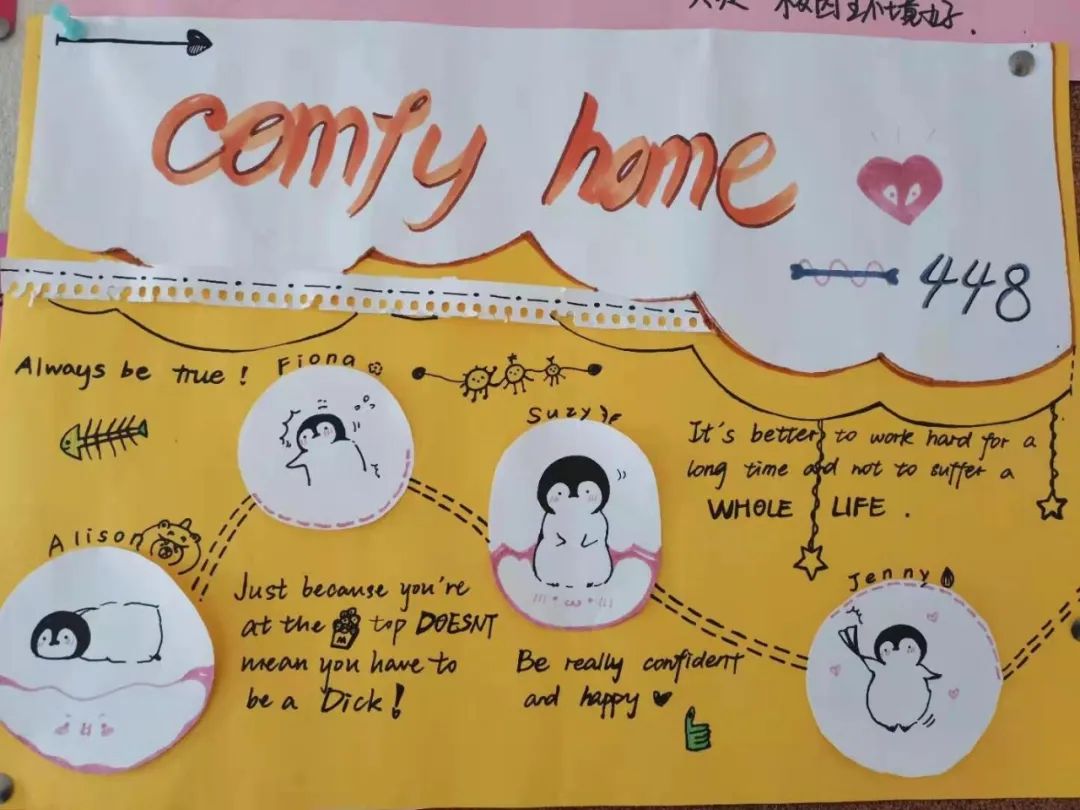 校园环境好.
comfy home
448
Always be true!
Fiona
Suzy
It's better to work hard for a
long time and not to suffer a
WHOLE LIFE .
Alison
Jenny
Just because you're
at the top DOESNT
mean you have to
be a Dick!
Be really confident
and happy